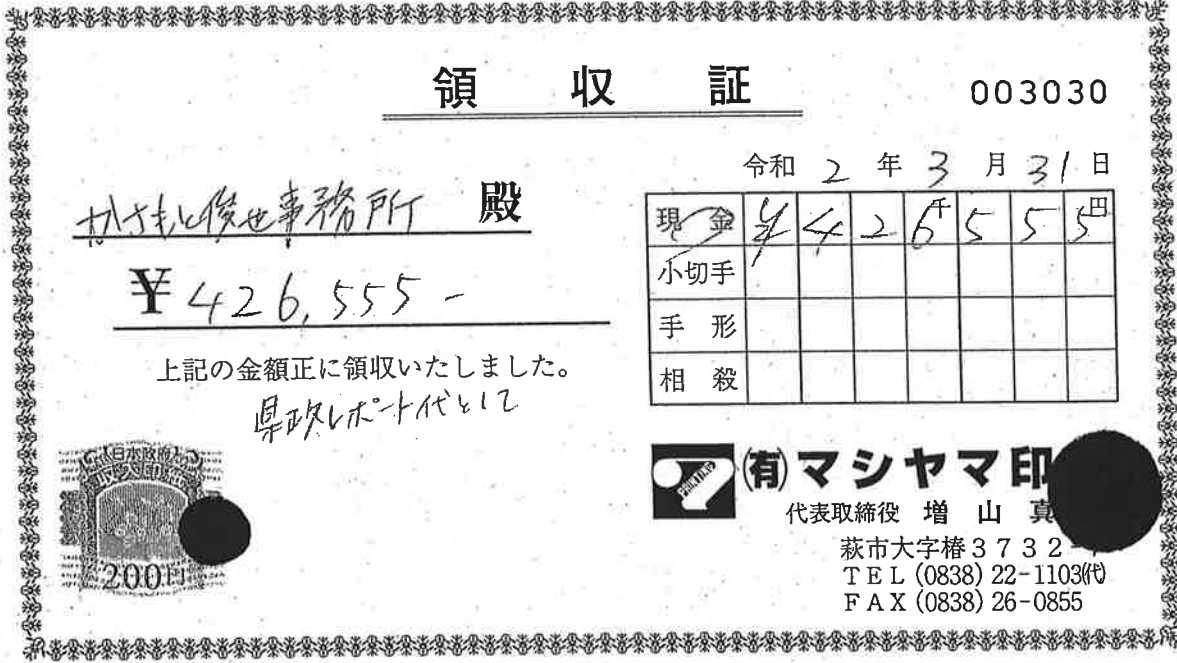 領収証
003030
令和 2 年 3 月 31 日
かさもと俊也事務所 殿
¥ 426,555-
上記の金額正に領収いたしました。
県政レポート代として
現金 ¥ 4 2 6千 5 5 5円
小切手
手形
相殺
日本政府
収入印紙
200円
(有)マシヤマ印
代表取締役 増山 真
萩市大字椿3732-
TEL (0838) 22-1103(代)
FAX (0838) 26-0855